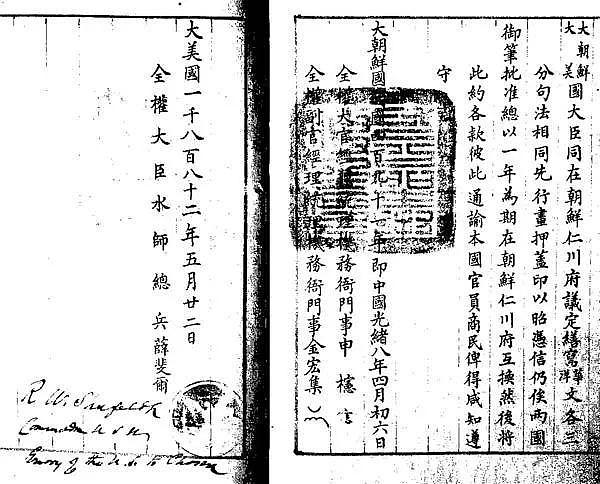 大朝鮮
大美
國大臣同在朝鮮仁川府議定繕寫華洋文各三
分句法相同先行畫押蓋印以昭憑信仍俟兩國
御筆批准總以一年為期在朝鮮仁川府互換然後將
此約各款彼此通諭本國官員商民俾得咸知遵
守
大朝鮮國國四百九十一年即中國光緒八年四月初六日
全權大官經理統理機務衙門事申櫶
全權副官經理統理機務衙門事金宏集
大美國一千八百八十二年五月廿二日
全權大臣水師總兵薛斐爾
R. W. Shufeldt
Commodore U.S.N.
Envoy of the U.S. to Chosen